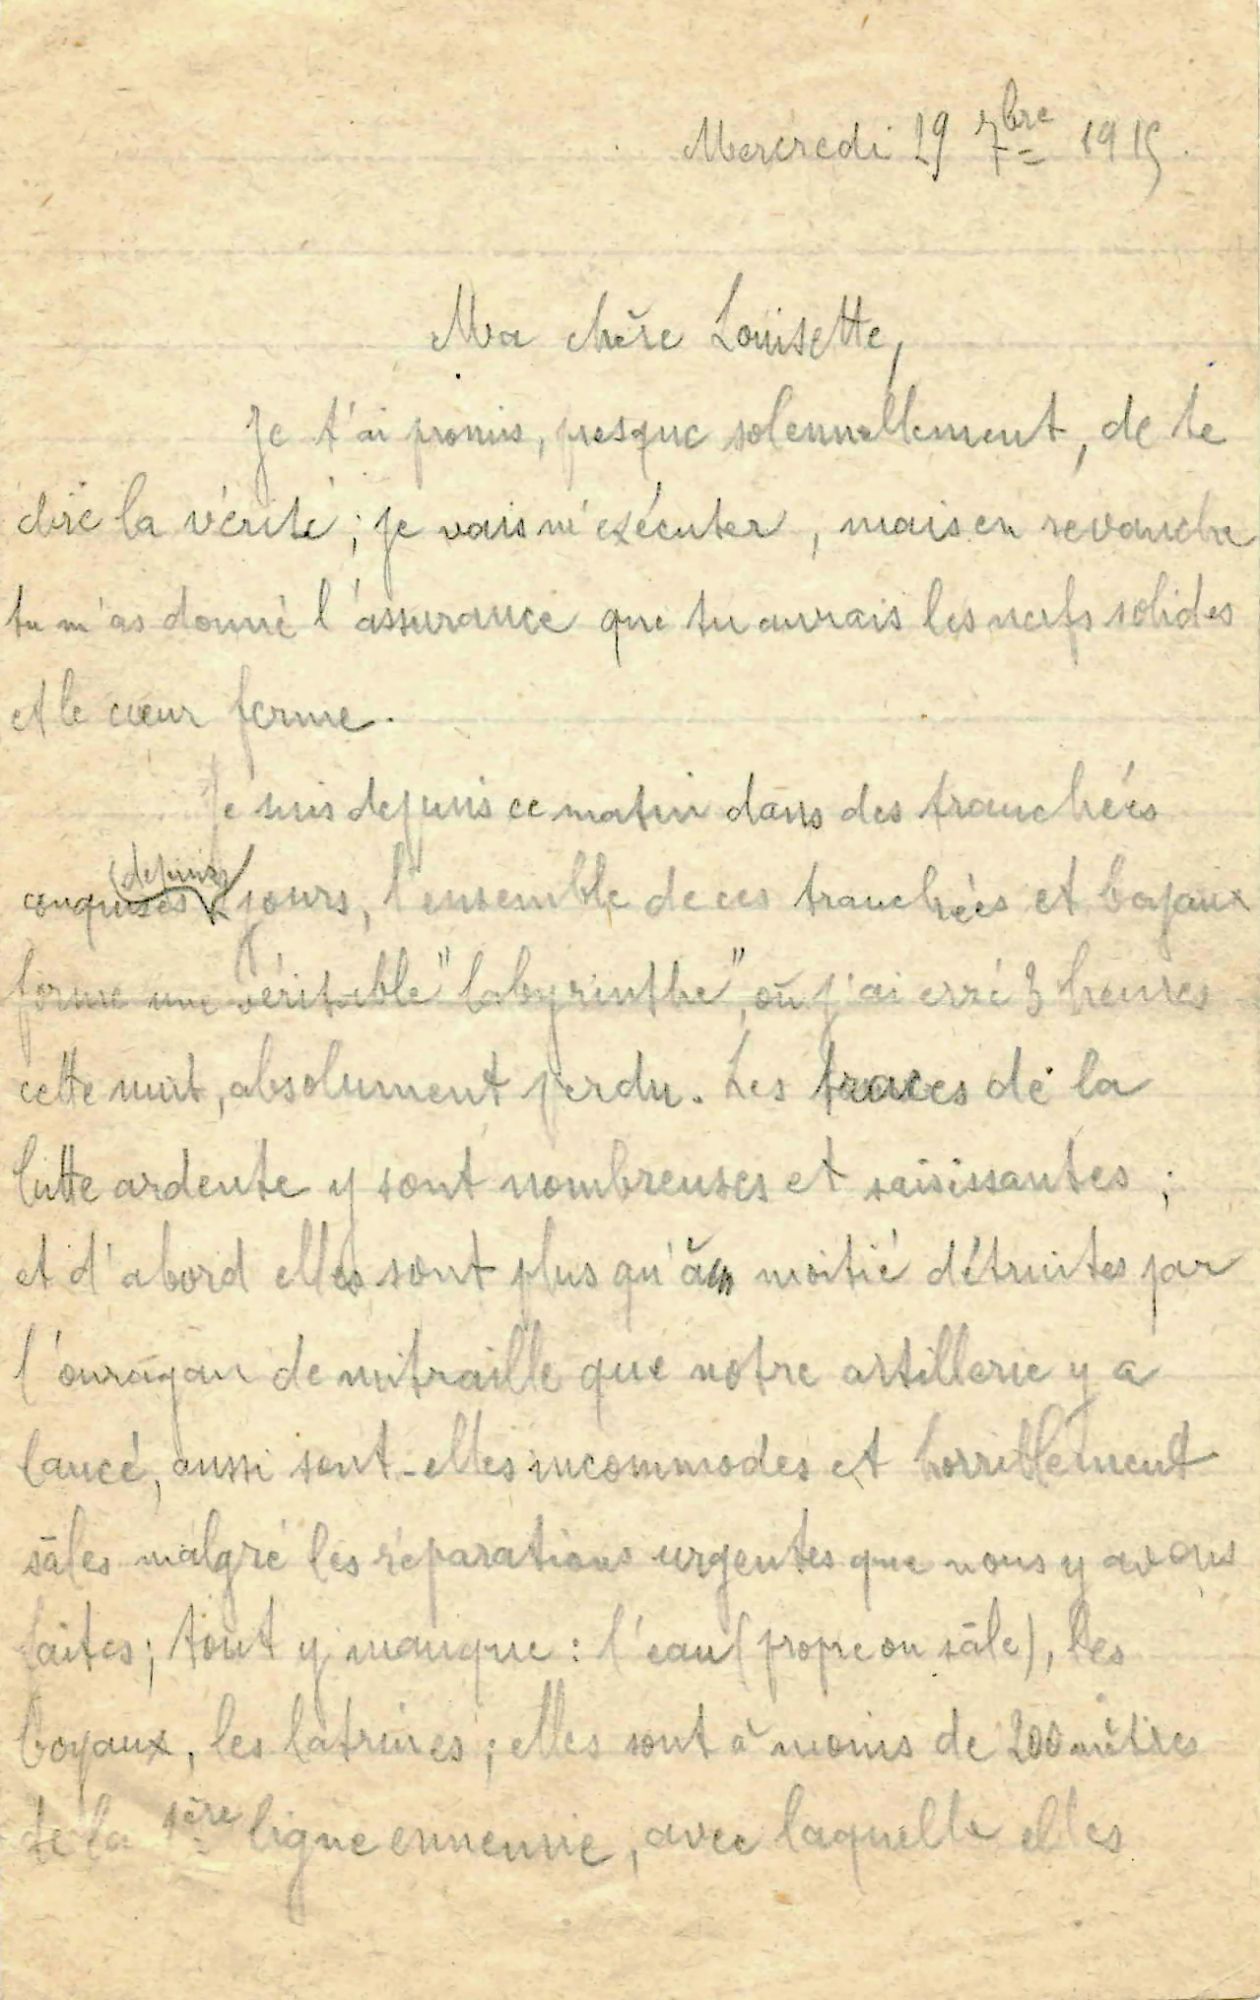 Mercredi 29 7bre 1915.
Ma chère Louisette,
Je t'ai promis, presque solennellement, de te
dire la vérité ; je vais m'exécuter, mais en revanche
tu m'as donné l'assurance que tu aurais les nerfs solides
et le cœur ferme.
Je suis depuis ce matin dans des tranchées
(depuis)
conquises jours, l'ensemble de ces tranchées et boyaux
forme une véritable "labyrinthe", où j'ai erré 3 heures
cette nuit, absolument perdu. Les traces de la
lutte ardente y sont nombreuses et saisissantes ;
et d'abord elles sont plus qu'à moitié détruites par
l'ouragan de mitraille que notre artillerie y a
lancé, aussi sont-elles incommodes et horriblement
sâles malgré les réparations urgentes que nous y avons
faites ; tout y manque : l'eau (propre ou sâle), les
boyaux, les latrines ; elles sont à moins de 200 mètres
de la 1ère ligne ennemie, avec laquelle elles